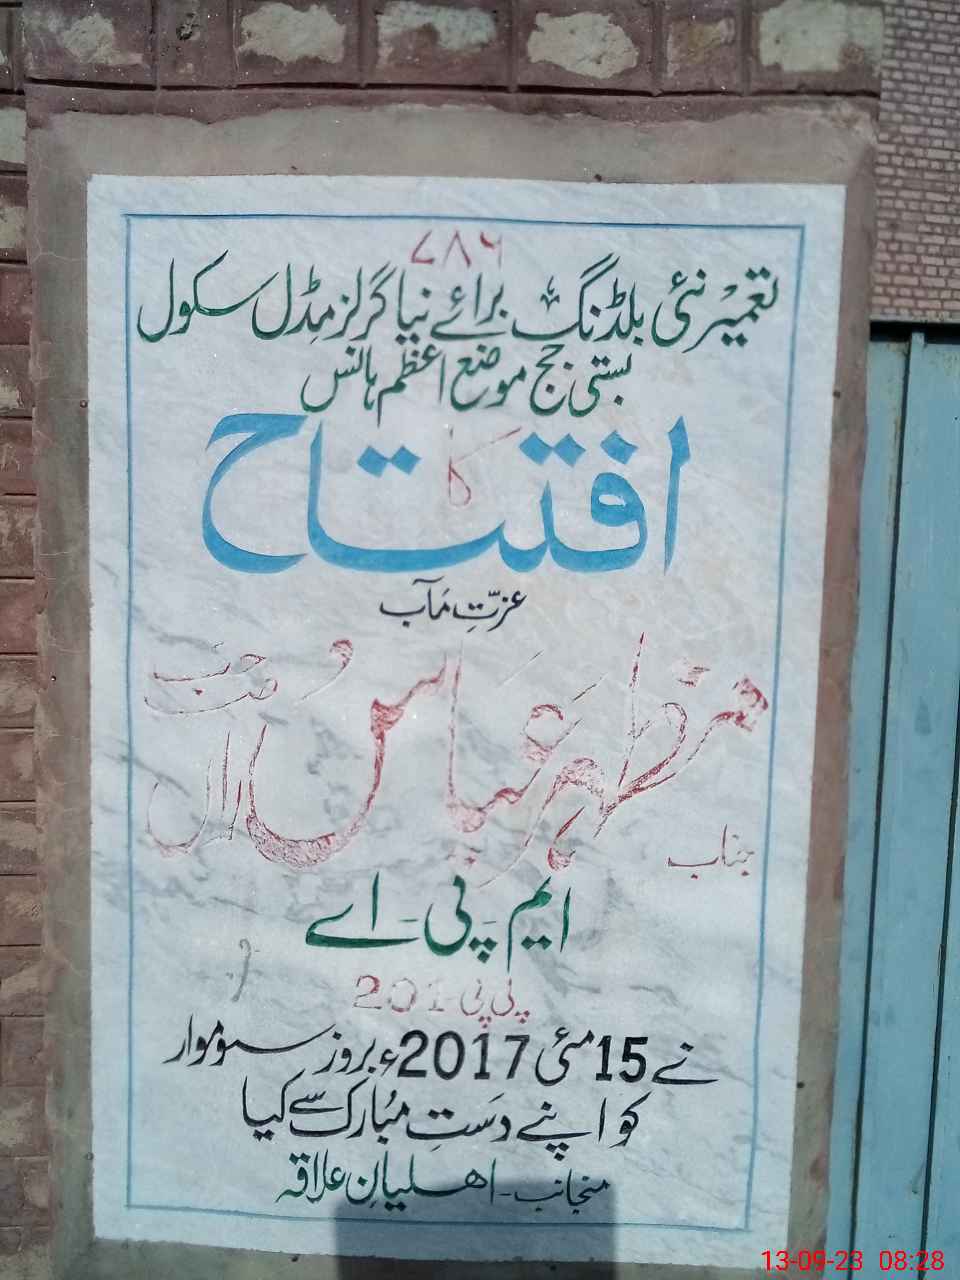 ۷۸۶
تعمیر نئی بلڈنگ برائے نیا گرلز مڈل سکول
بستی جج موضع اعظم ہانس
کا
افتتاح
عزتِ مآب
جناب مظہر عباس راں صاحب
ایم - پی - اے
پی پی 201
نے 15 مئی 2017ء بروز سوموار
کو اپنے دَستِ مُبارک سے کیا
منجانب - اھلیانِ علاقہ
13-09-23 08:28